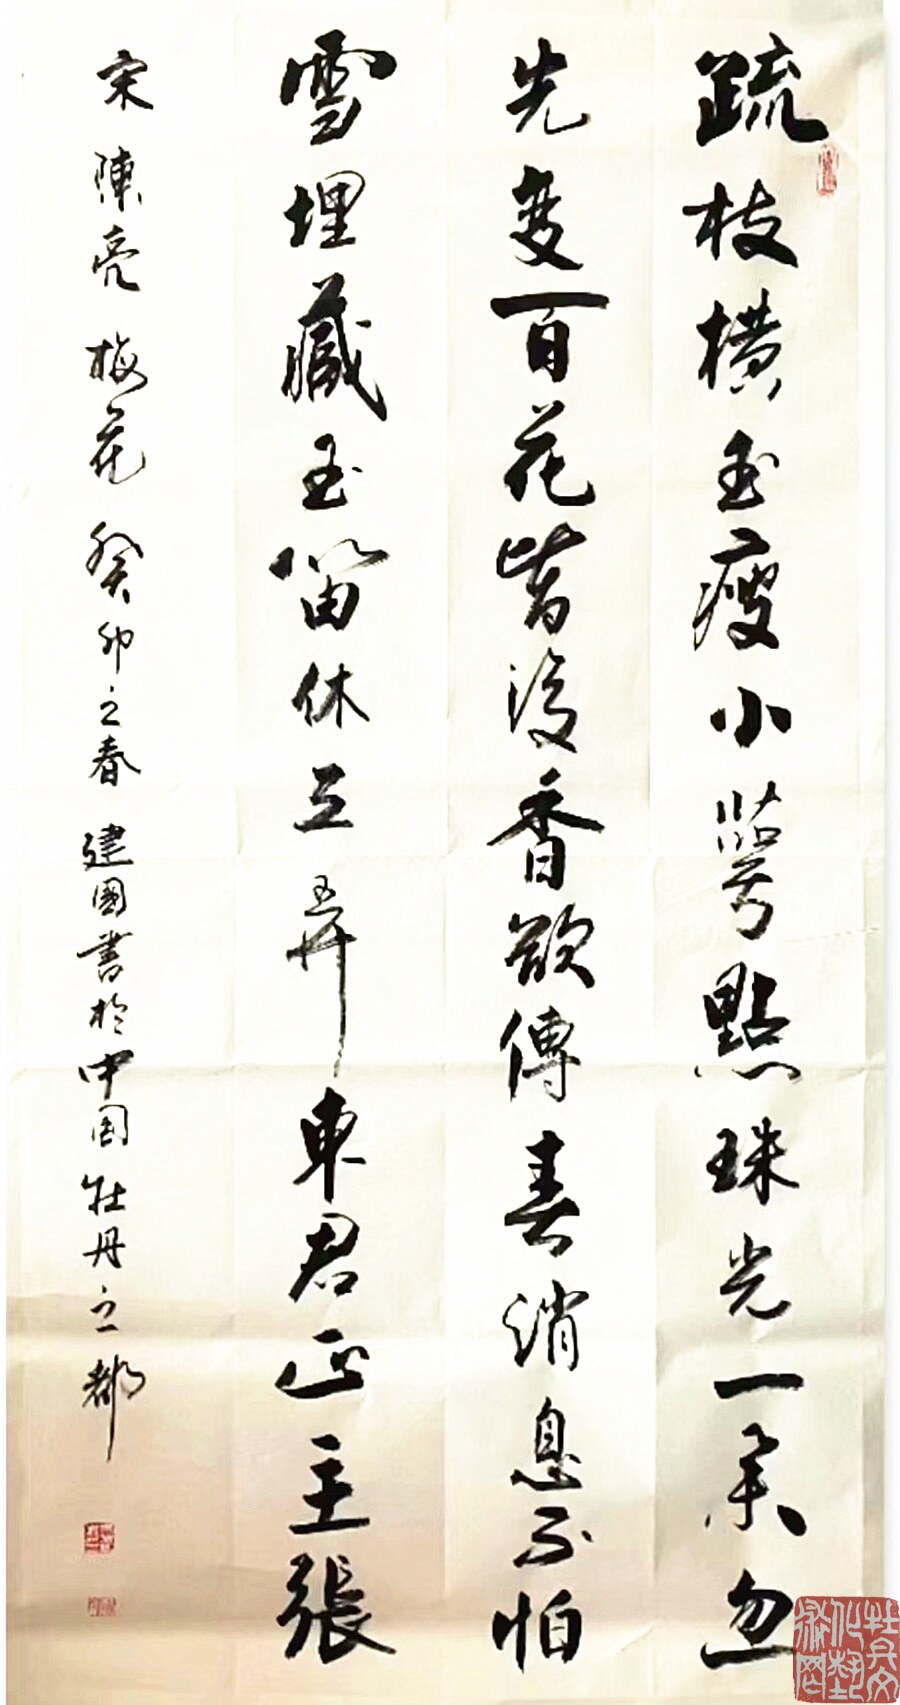 疏枝橫玉瘦小萼點珠光一朵忽
先變百花皆後香欲傳春消息不怕
雪埋藏玉笛休三弄東君正主張
宋陳亮梅花癸卯之春建國書於中国牡丹之都